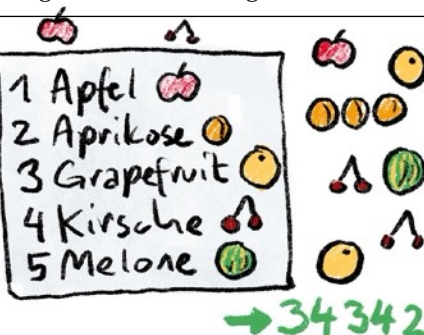 1 Apfel
2 Aprikose
3 Grapefruit
4 Kirsche
5 Melone
→ 34342